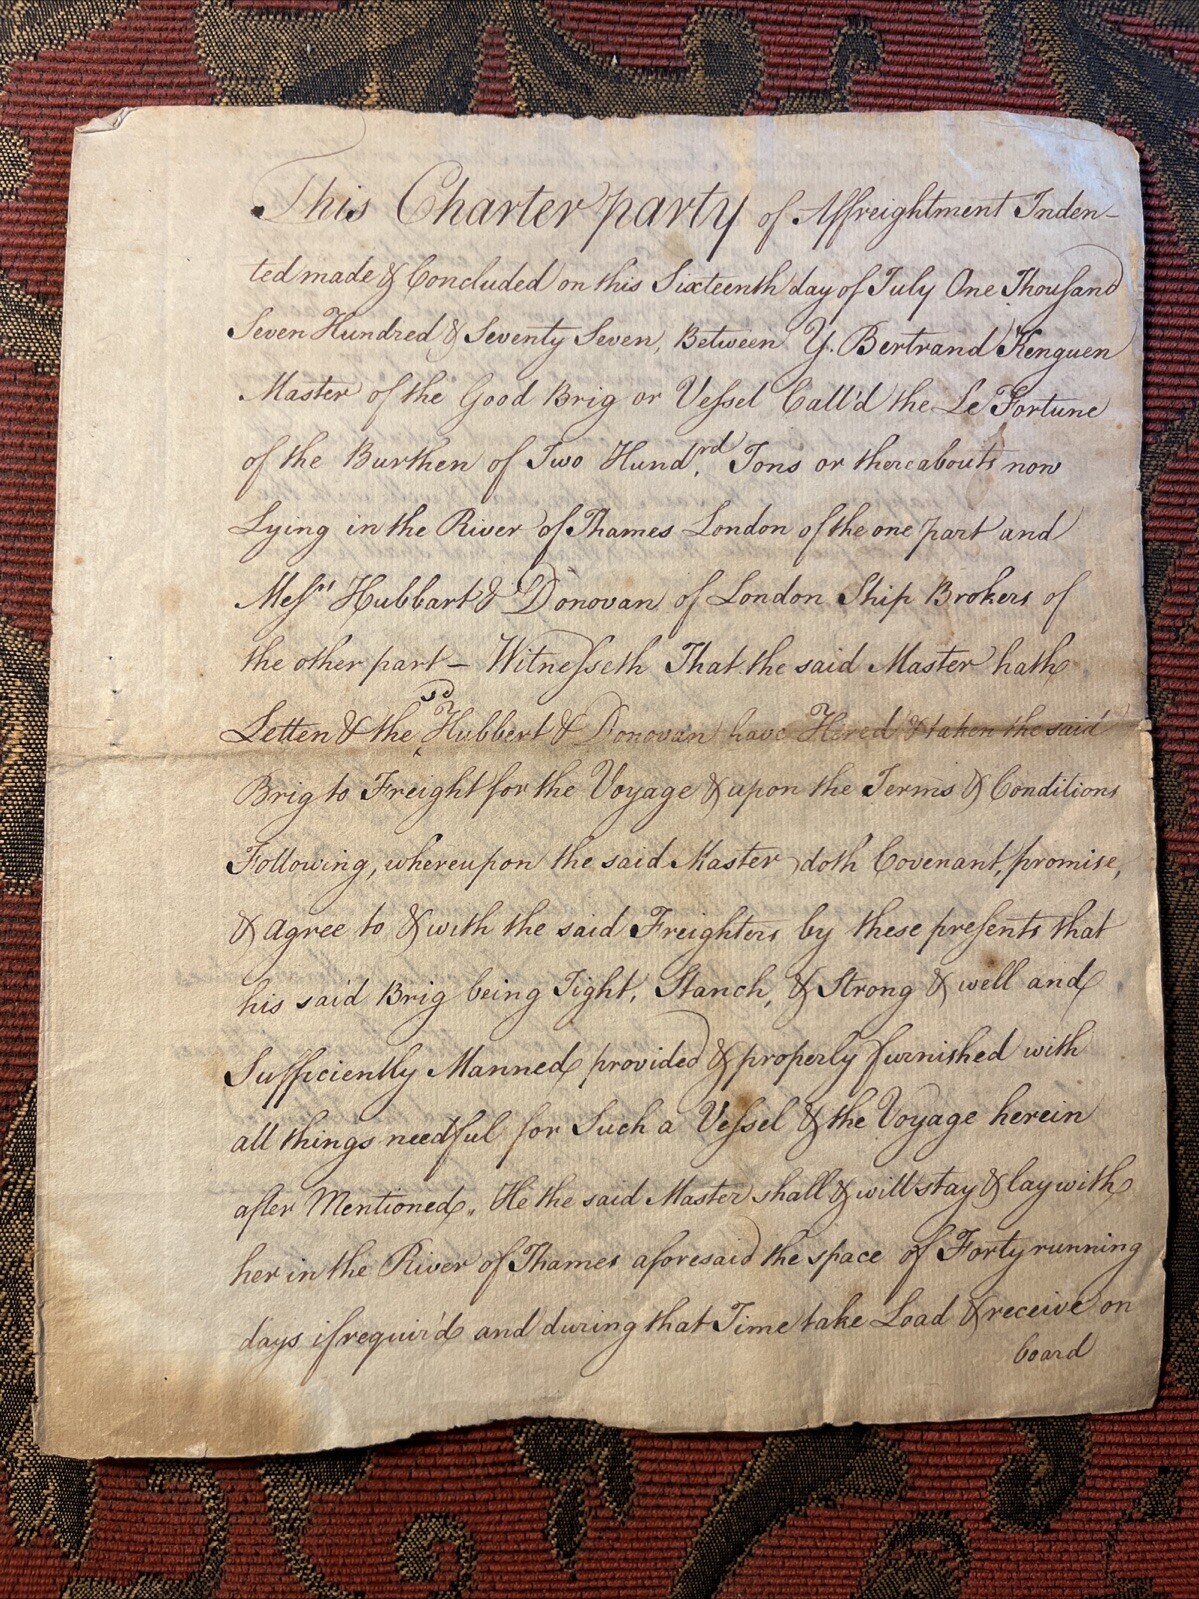 This Charter party of Affreightment Inden-
ted made & Concluded on this Sixteenth day of July One Thousand
Seven Hundred & Seventy Seven, Between Y. Bertrand Kenguen
Master of the Good Brig or Vessel Call'd the Le Fortune
of the Burthen of Two Hund.rd Tons or thereabouts now
Lying in the River of Thames London of the one part and
Messrs Hubbart & Donovan of London Ship Brokers of
the other part – Witnesseth That the said Master hath
sd
Letten & the Hubbert & Donovan have Hired & taken the said
Brig to Freight for the Voyage & upon the Terms & Conditions
Following, whereupon the said Master doth Covenant, promise,
& agree to & with the said Freighters by these presents that
his said Brig being Tight, Stanch, & Strong & well and
Sufficiently Manned provided & properly furnished with
all things needful for Such a Vessel & the Voyage herein
after Mentioned, He the said Master shall & will stay & lay with
her in the River of Thames aforesaid the space of Forty running
days if requir'd and during that Time take Load & receive on
board